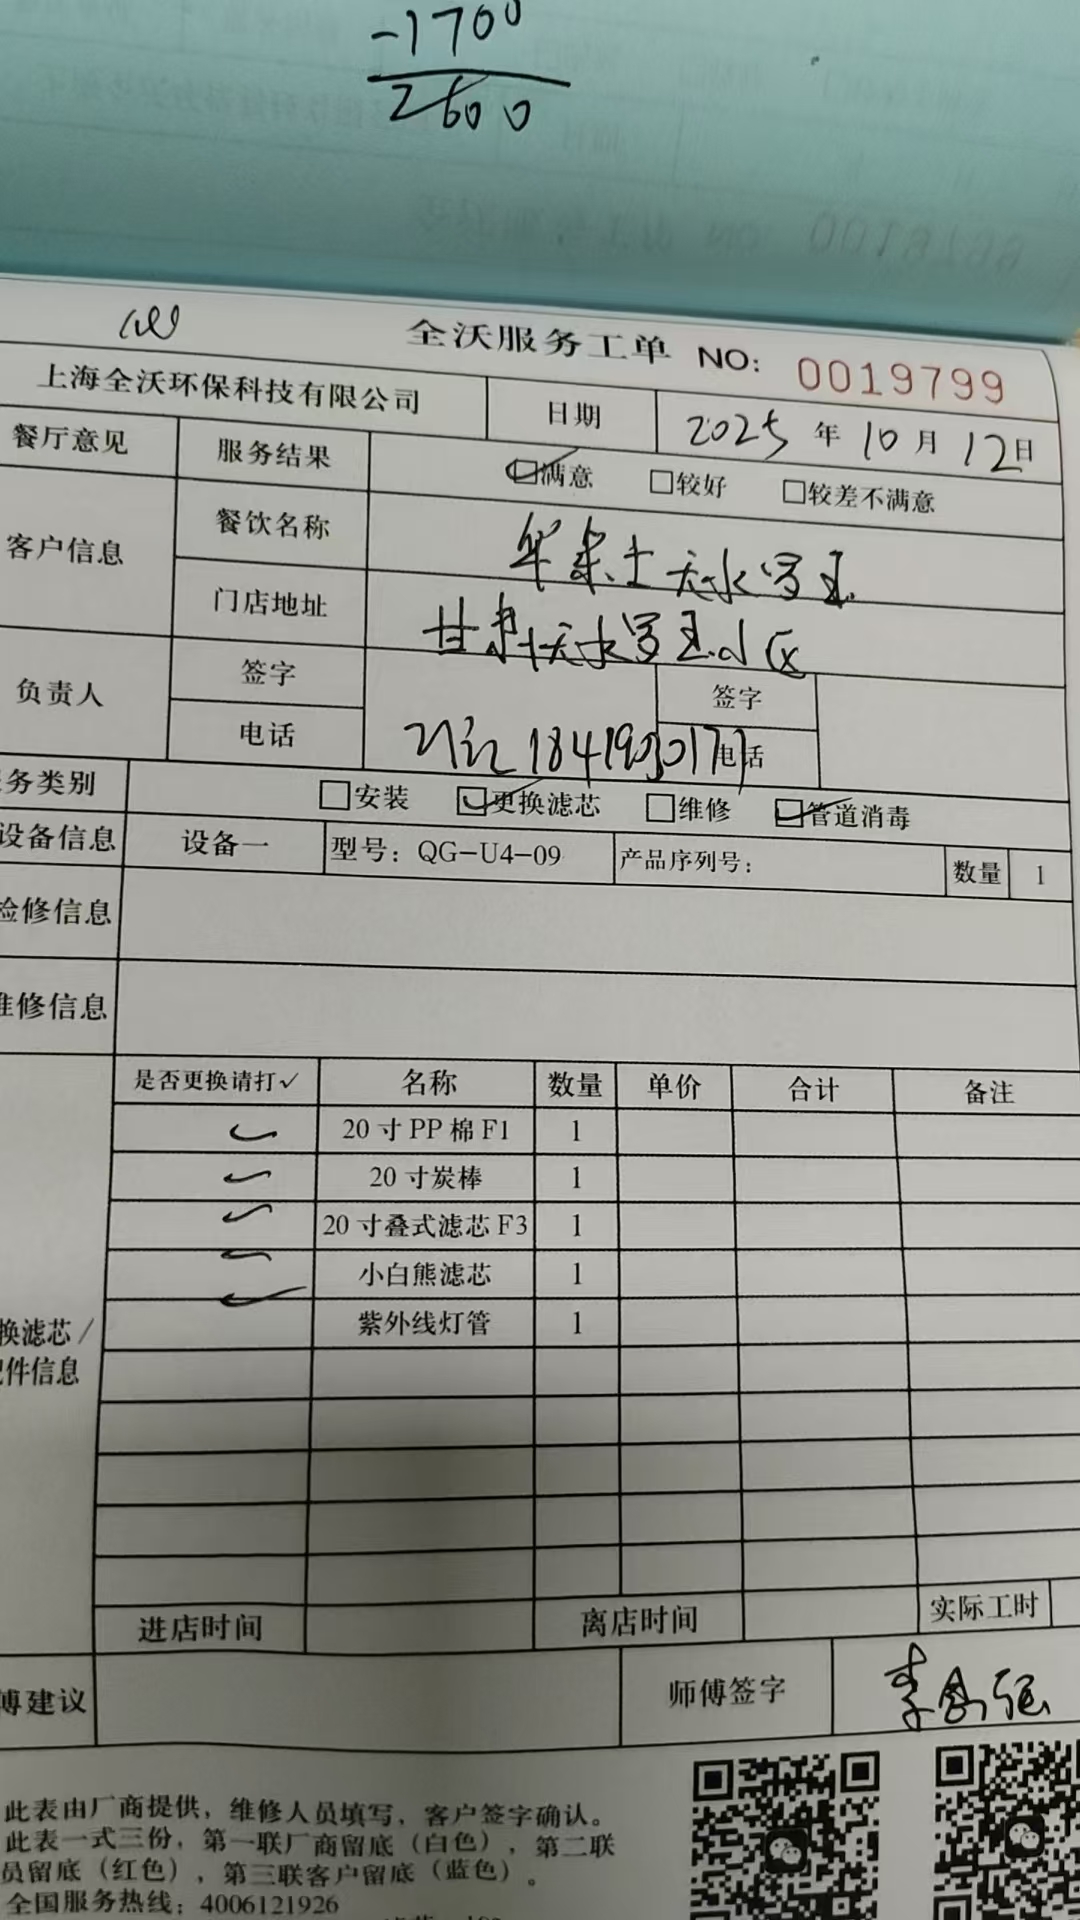 -1700
2600
全沃服务工单 NO: 0019799
上海全沃环保科技有限公司 日期 2025 年 10 月 12 日
餐厅意见 服务结果 ☑满意 □较好 □较差不满意
客户信息 餐饮名称 华莱士天水罗玉
门店地址 甘肃天水罗玉小区
负责人 签字 签字
电话 184193 电话
务类别 □安装 ☑更换滤芯 □维修 ☑管道消毒
设备信息 设备一 型号：QG-U4-09 产品序列号： 数量 1
检修信息
维修信息
是否更换请打✓ 名称 数量 单价 合计 备注
✓ 20寸PP棉F1 1
✓ 20寸炭棒 1
✓ 20寸叠式滤芯F3 1
✓ 小白熊滤芯 1
✓ 紫外线灯管 1
换滤芯/
配件信息
进店时间 离店时间 实际工时
傅建议 师傅签字 李 强
此表由厂商提供，维修人员填写，客户签字确认。
此表一式三份，第一联厂商留底（白色），第二联
员留底（红色），第三联客户留底（蓝色）。
全国服务热线：4006121926